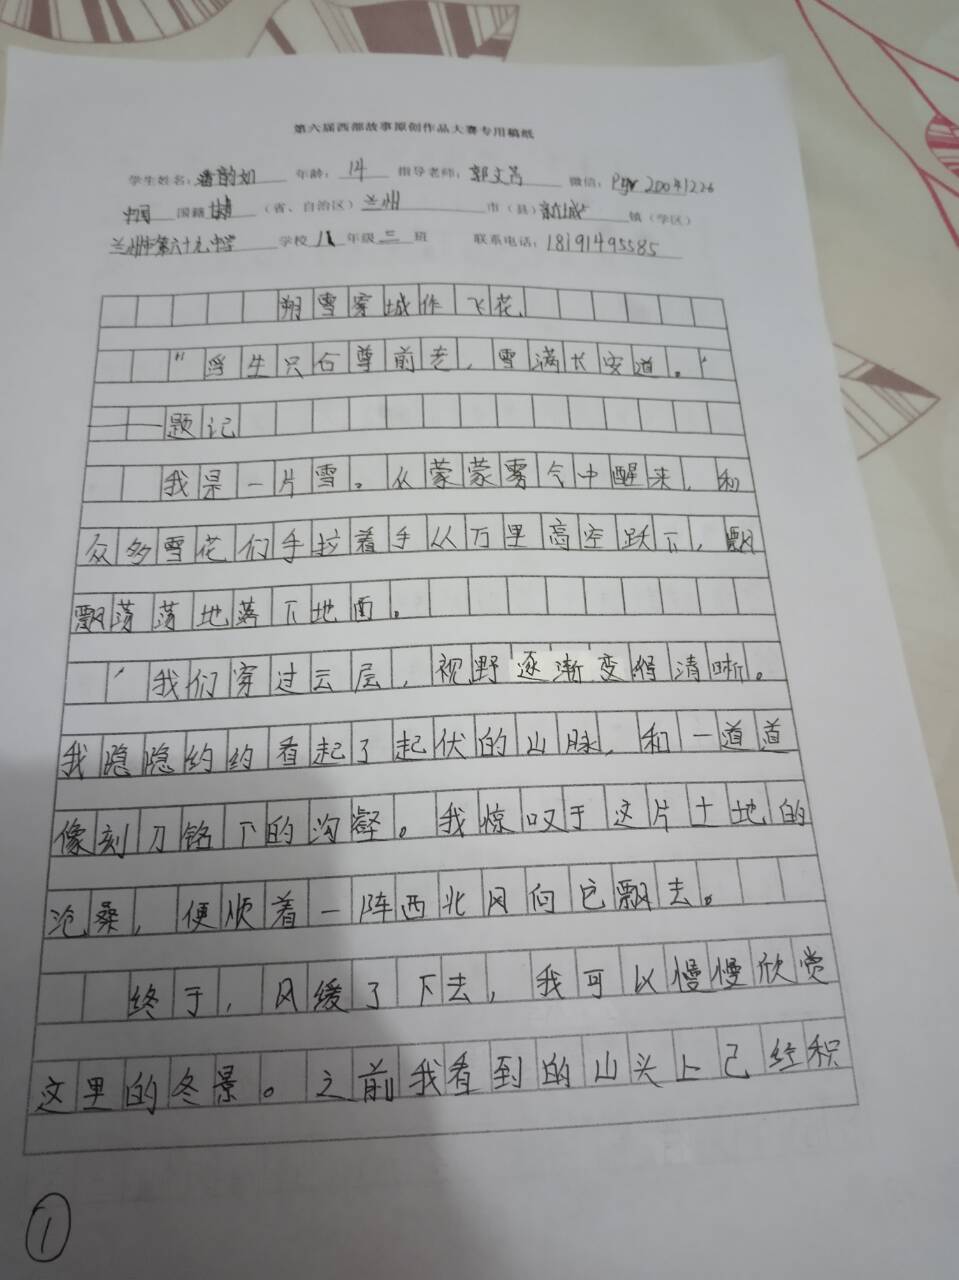 第六届西部故事原创作品大赛专用稿纸
学生姓名：潘韵如 年龄：14 指导老师：郭文芳 微信：Pyr20041226
中国 国籍 甘肃 （省、自治区） 兰州 市（县） 新城 镇（学区）
兰州市第六十九中学 学校 八 年级 三 班 联系电话：18191495585
朔雪穿城作飞花
“浮生只合尊前老，雪满长安道。”
——题记
我是一片雪。从蒙蒙雾气中醒来，和
众多雪花们手拉着手从万里高空跃下，飘
飘荡荡地落下地面。
我们穿过云层，视野逐渐变得清晰。
我隐隐约约看起了起伏的山脉，和一道道
像刻刀铭下的沟壑。我惊叹于这片土地的
沧桑，便顺着一阵西北风向它飘去。
终于，风缓了下去，我可以慢慢欣赏
这里的冬景。之前我看到的山头上已经积
1